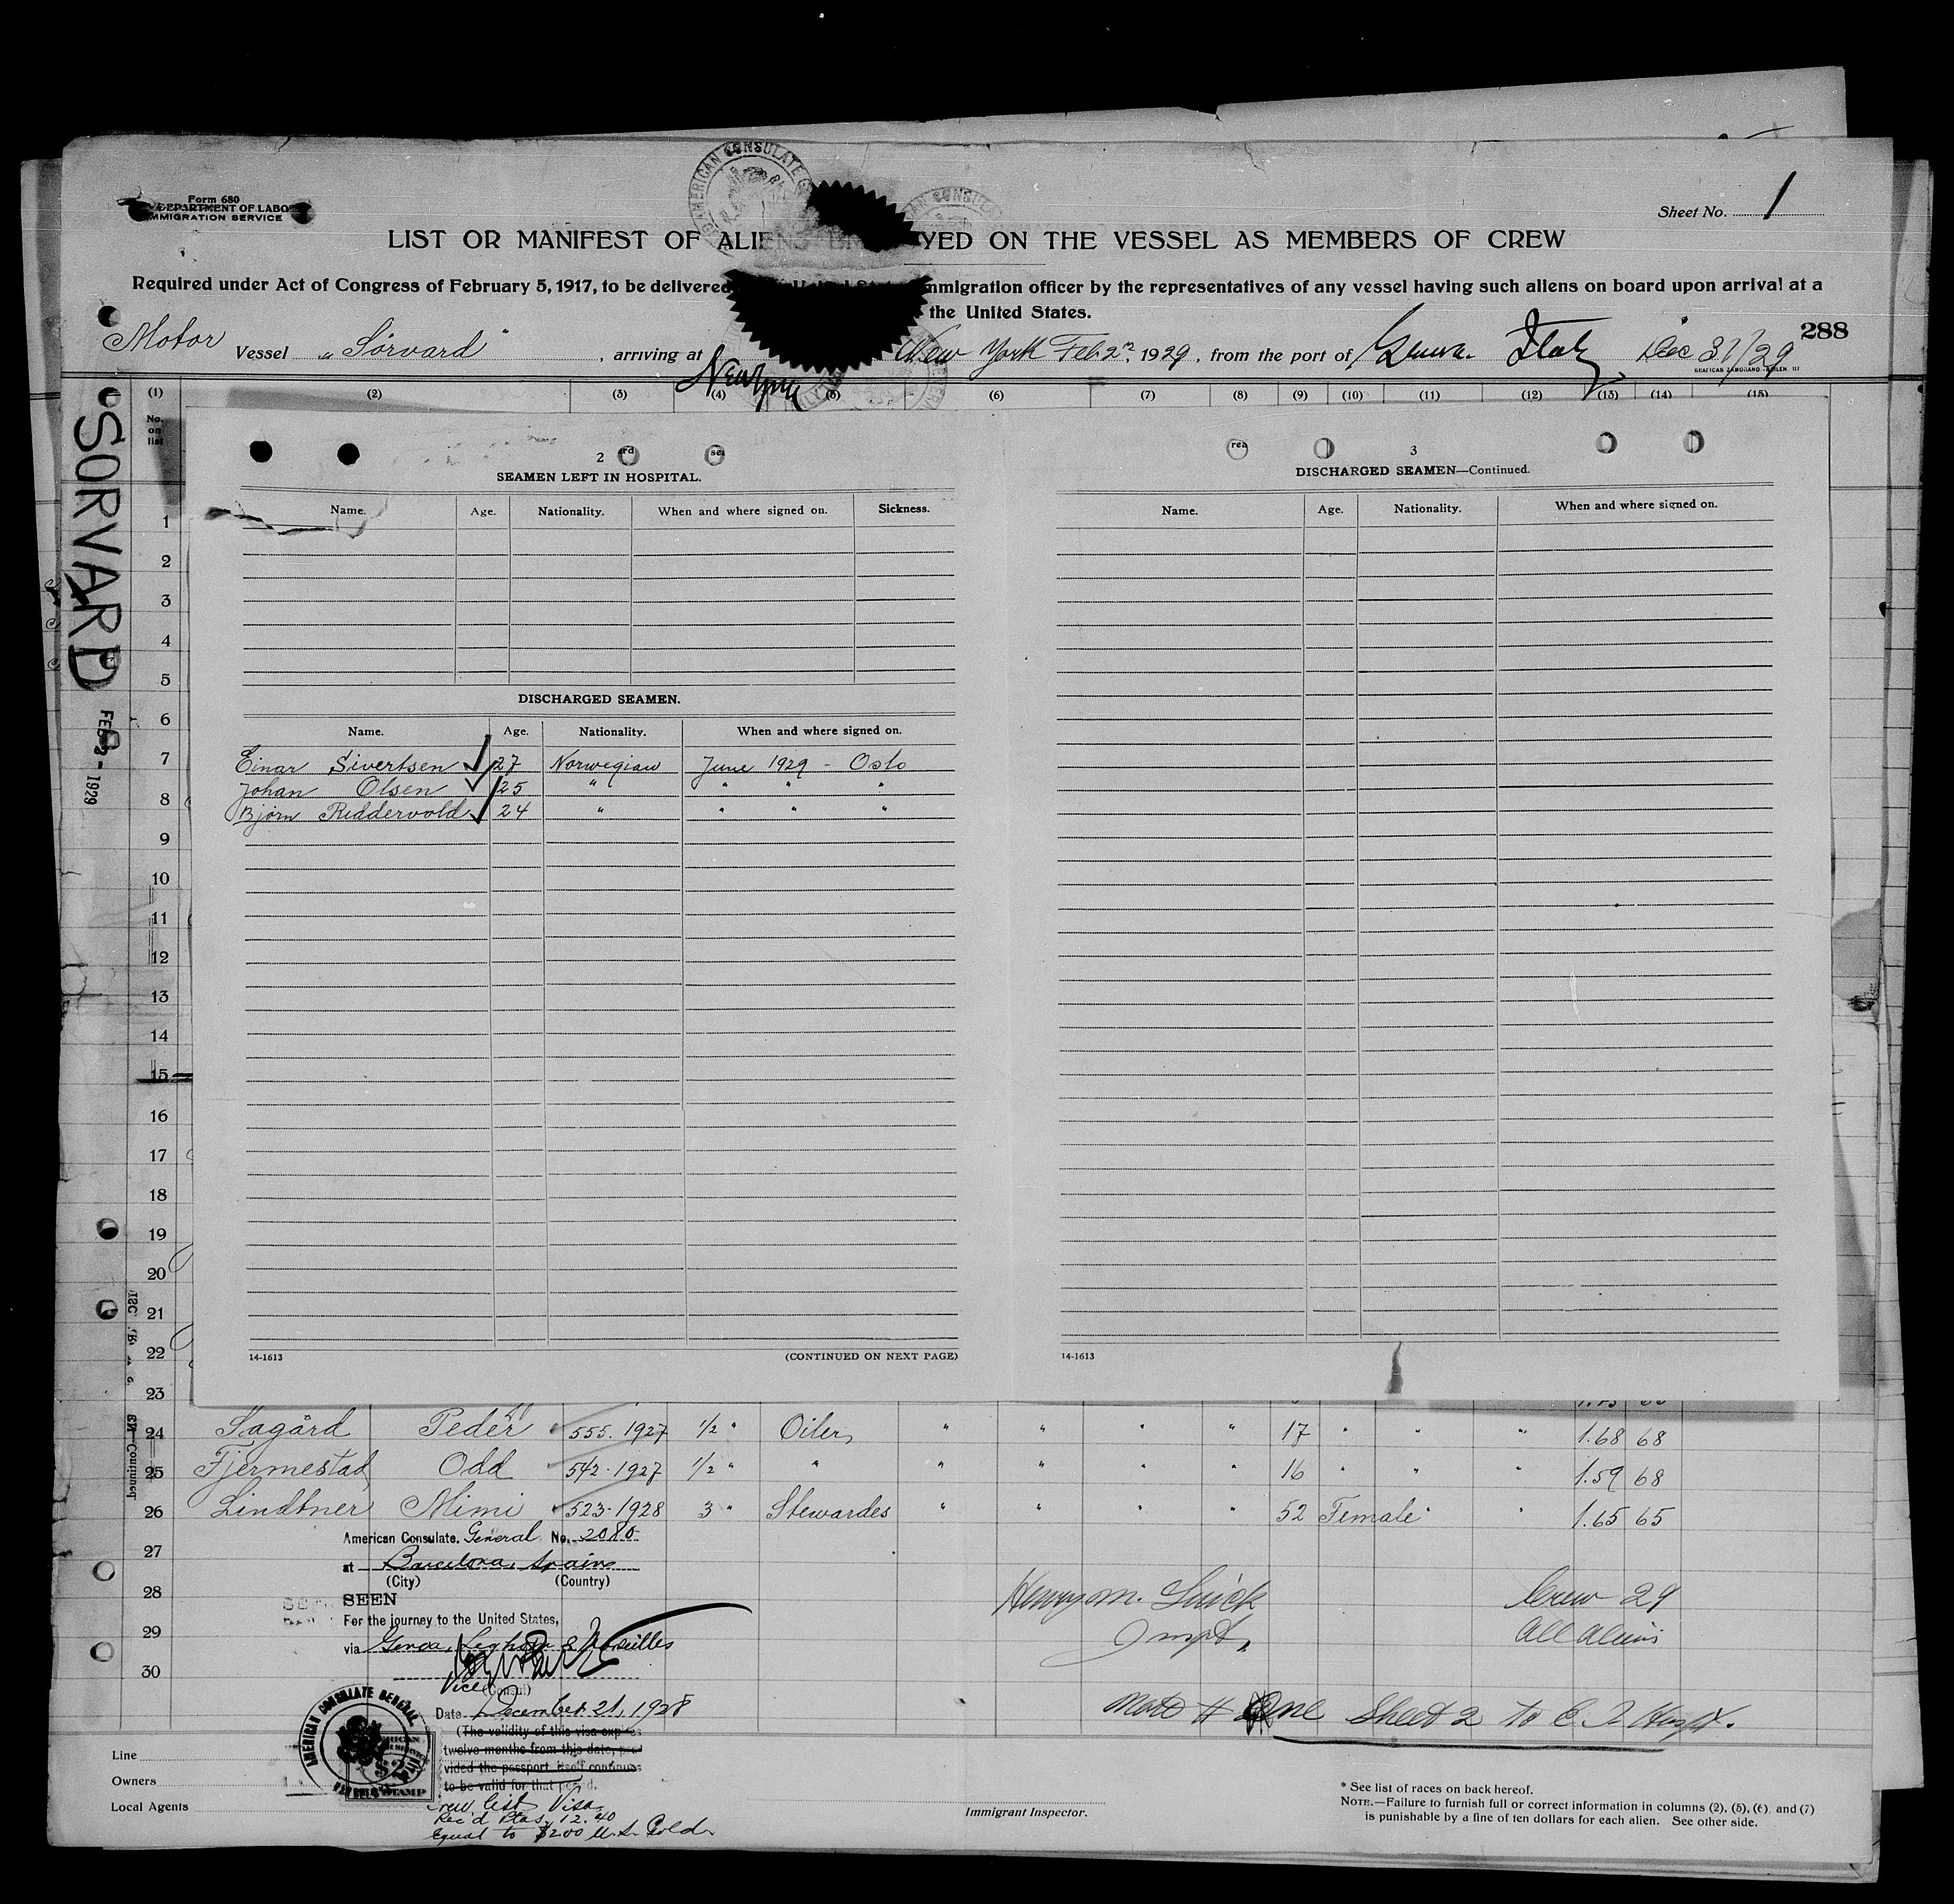 Form 680
DEPARTMENT OF LABOR
IMMIGRATION SERVICE
AMERICAN CONSULATE
Sheet No. 1
LIST OR MANIFEST OF ALIENS YED ON THE VESSEL AS MEMBERS OF CREW
Required under Act of Congress of February 5, 1917, to be delivered United States immigration officer by the representatives of any vessel having such aliens on board upon arrival at a
the United States.
288
Motor Vessel „Sörvard", arriving at New York Feb. 2nd, 1929, from the port of Genoa Italy Dec 31/29
Newyork
(1) (2) (3) (4) (5) (6) (7) (8) (9) (10) (11) (12) (13) (14) (15)
No. on list
SORVARD
FEB 2 - 1929
2
SEAMEN LEFT IN HOSPITAL.
Name. Age. Nationality. When and where signed on. Sickness.
DISCHARGED SEAMEN.
Name. Age. Nationality. When and where signed on.
Einar Sivertsen 27 Norwegian June 1929 - Oslo
Johan Olsen 25 " " " "
Bjorn Riddervold 24 " " " "
14-1613 (CONTINUED ON NEXT PAGE)
3
DISCHARGED SEAMEN—Continued.
Name. Age. Nationality. When and where signed on.
14-1613
1
2
3
4
5
6
7
8
9
10
11
12
13
14
15
16
17
18
19
20
21
22
23
24 Sagård Peder " 555. 1927 1/2 " Oiler " " " " 17 " " " 1.68 68
25 Fjermestad Odd " 542-1927 1/2 " " " " " " 16 " " " 1.59 68
26 Lindtner Mimi " 523-1928 3 " Stewardes " " " " 52 Female " " 1.65 65
27
28
29
30
American Consulate General No. 2080
at Barcelona, Spain
(City) (Country)
SEEN
For the journey to the United States,
via Genoa, Leghorn & Marseilles
Vice (Consul)
Date December 21, 1928
(The validity of this visa expires
twelve months from this date, pro-
vided the passport itself continues
to be valid for that period.
Crew list Visa
Rec'd Ptas. 12.40
equal to $2.00 U.S. Gold
AMERICAN CONSULATE GENERAL
$2
STAMP
Henry M. Quick
Inspt.
Crew 29
All Aliens
Note # One Sheet 2 to
Line
Owners
Local Agents
Immigrant Inspector.
* See list of races on back hereof.
NOTE.—Failure to furnish full or correct information in columns (2), (5), (6) and (7)
is punishable by a fine of ten dollars for each alien. See other side.